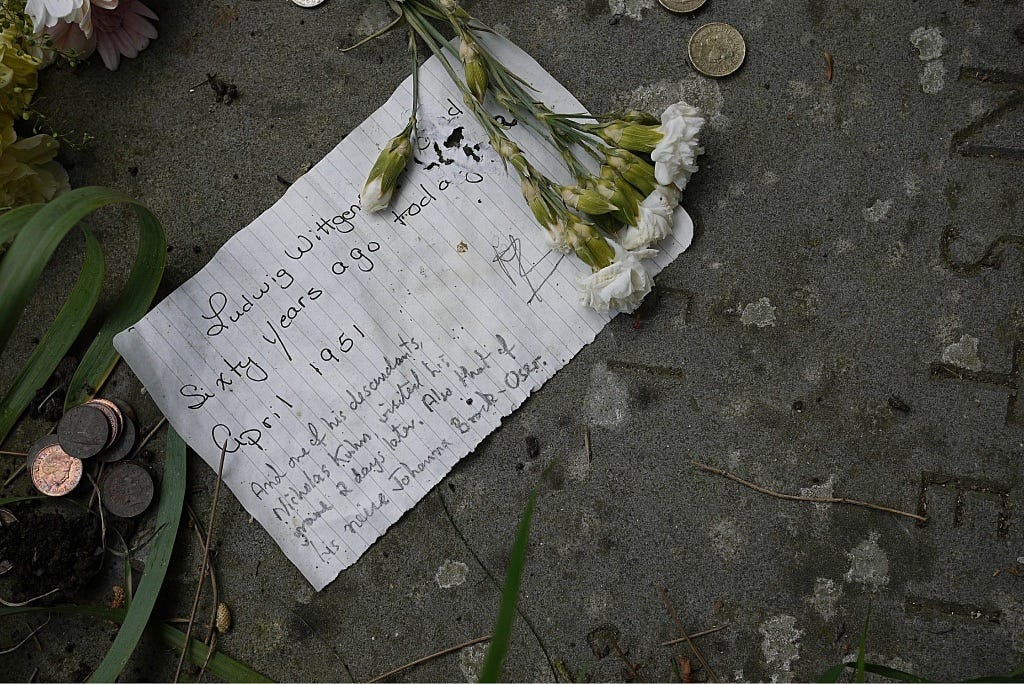 Ludwig Wittgen d
Sixty years ago today 2
April 1951
And one of his descendants,
Nicholas Kuhn, visited his
grave 2 days later. Also that of
his neice Johanna Brock-Oser.